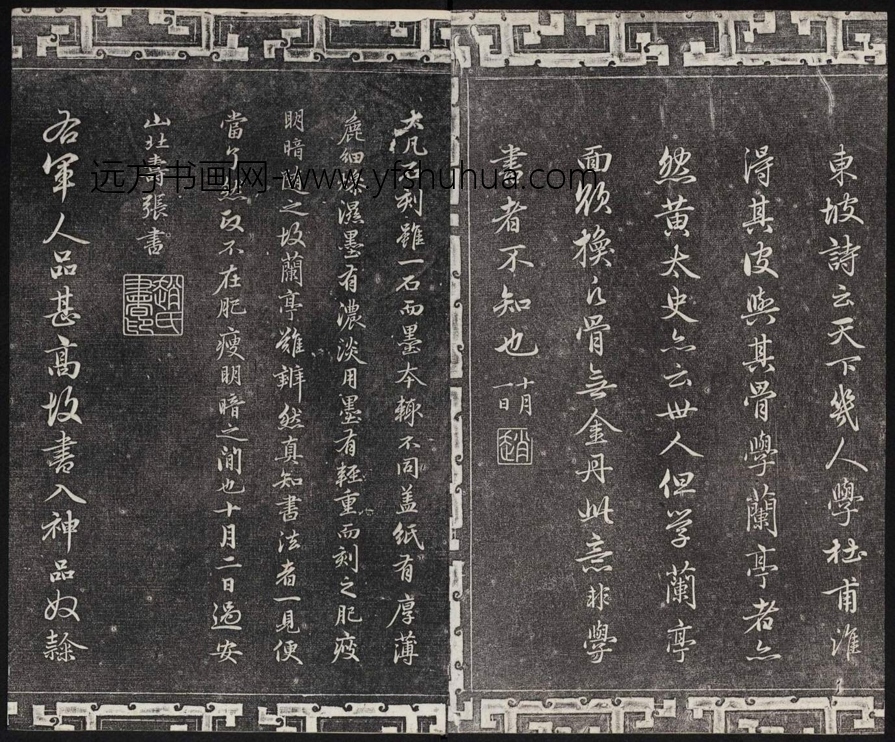 東坡詩云天下幾人學杜甫誰
得其皮與其骨學蘭亭者亦
然黃太史亦云世人但學蘭亭
面欲換凡骨無金丹此意非學
書者不知也十月
一日
趙
大凡石刻雖一石而墨本輒不同蓋紙有厚薄
麁細燥濕墨有濃淡用墨有輕重而刻之肥瘦
明暗隨之故蘭亭難辨然真知書法者一見便
當了然政不在肥瘦明暗之間也十月二日過安
山北壽張書
趙氏
書印
右軍人品甚高故書入神品奴隸
远方书画网-www.yfshuhua.com